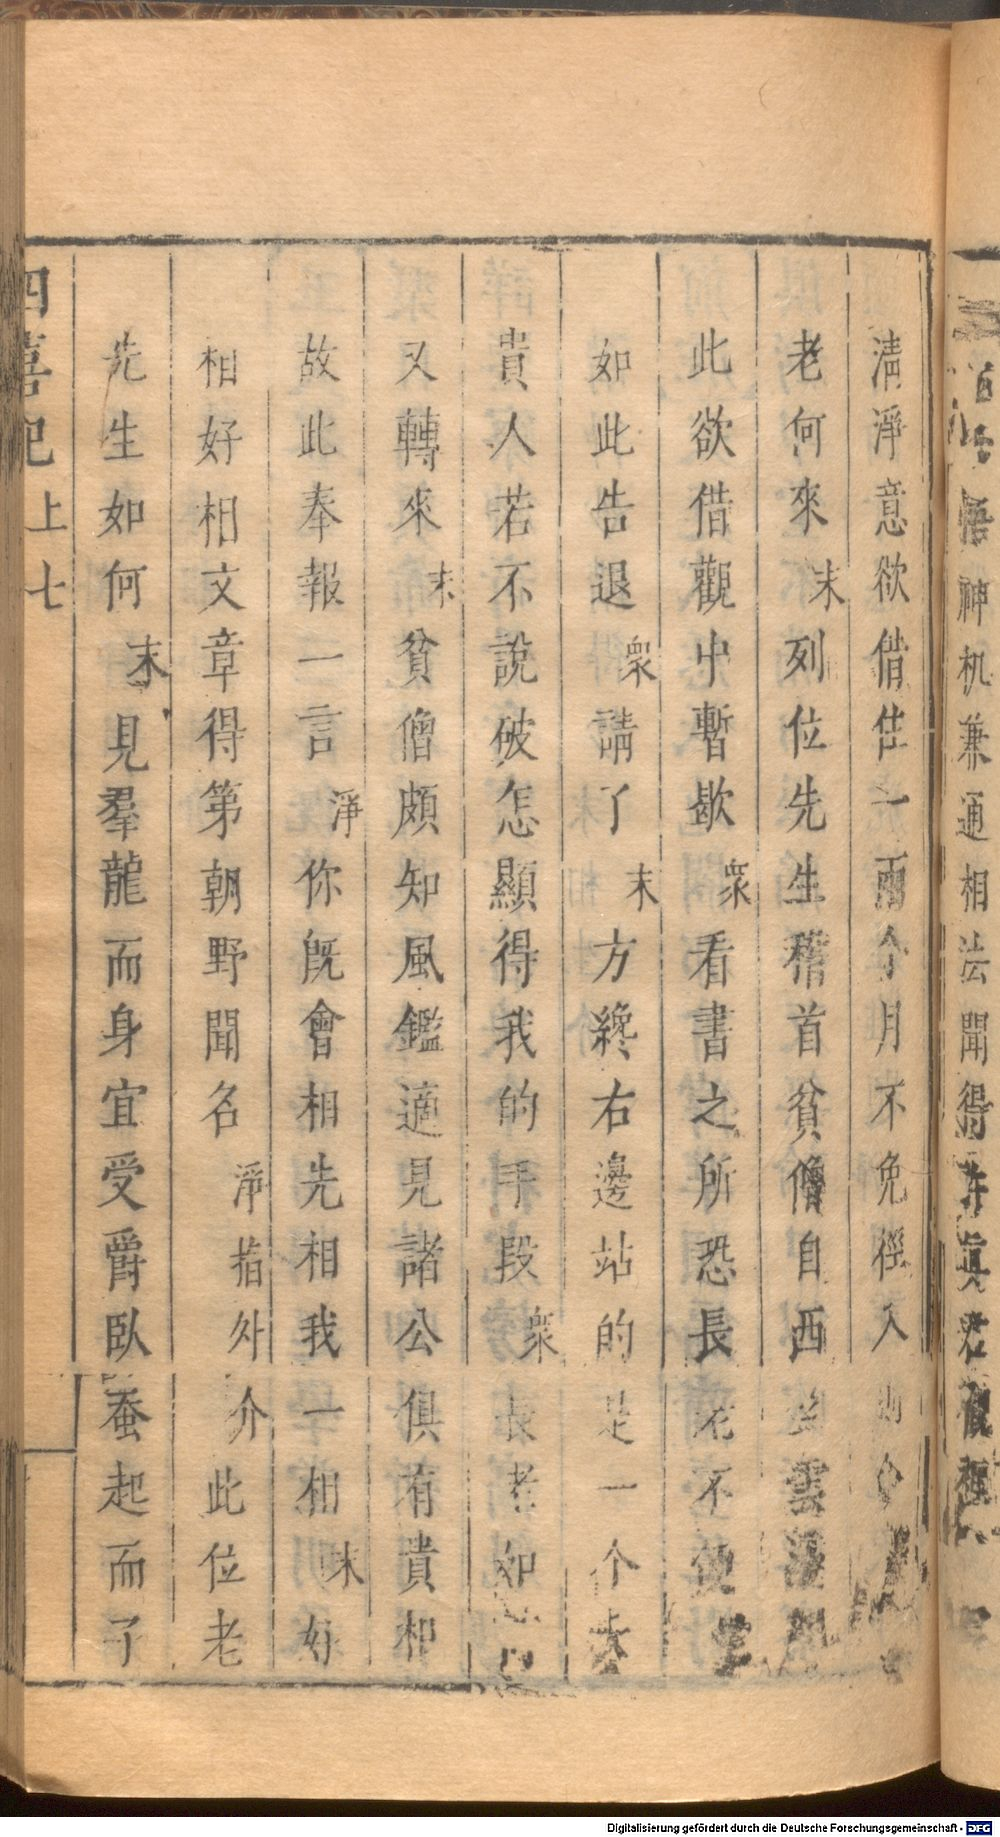 神机兼通相法聞得
清淨意欲借住一兩个月不免徑入
老何來末列位先生稽首貧僧自西雲
此欲借觀中暫歇衆看書之所恐長老不便
如此告退衆請了末方纔右邊站的是一个
貴人若不說破怎顯得我的手段衆長老如
又轉來末貧僧頗知風鑑適見諸公俱有貴相
故此奉報一言淨你旣會相先相我一相末好
相好相文章得第朝野聞名淨指外介此位老
先生如何末見羣龍而身宜受爵臥蚕起而子
四喜記 上 七
Digitalisierung gefördert durch die Deutsche Forschungsgemeinschaft - DFG